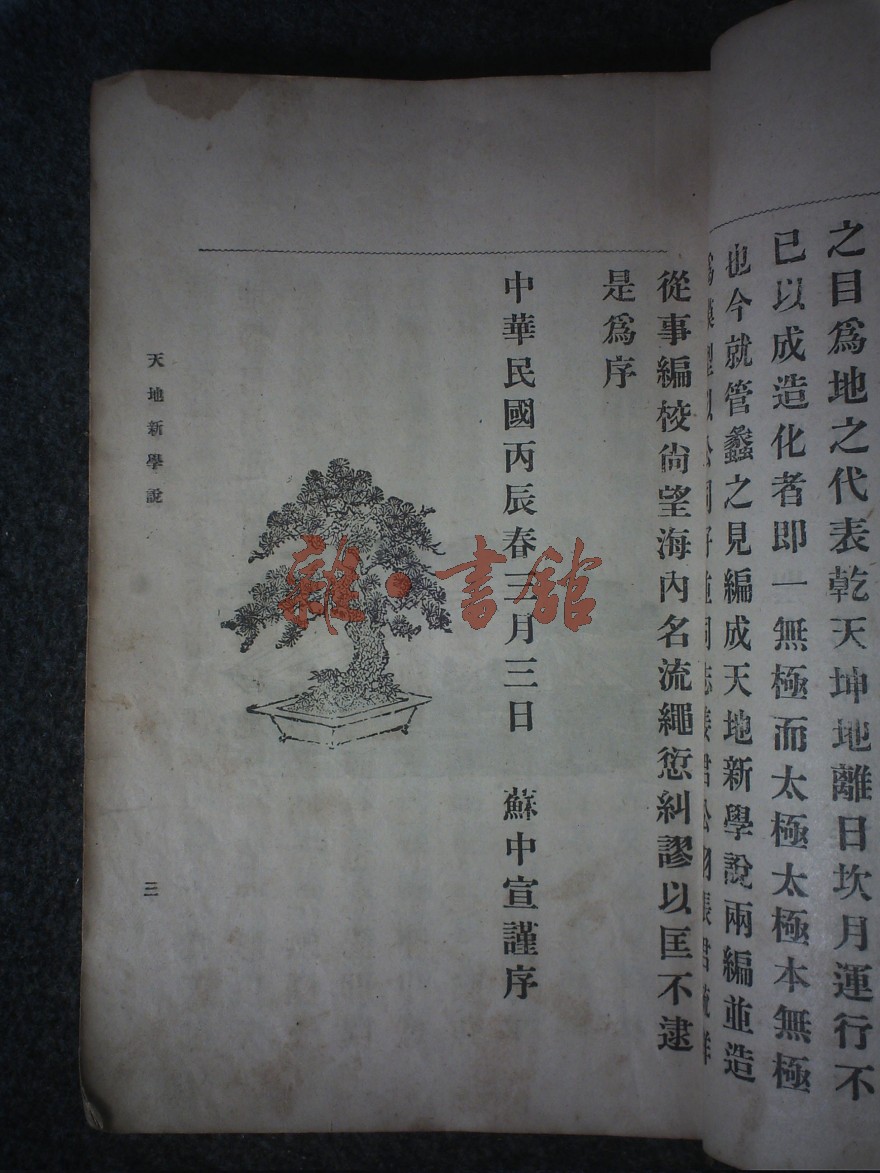 之目爲地之代表乾天坤地離日坎月運行不
已以成造化者即一無極而太極太極本無極
也今就管蠡之見編成天地新學說兩編並造
從事編校尙望海內名流繩愆糾謬以匡不逮
是爲序
中華民國丙辰春三月三日　蘇中宣謹序
天地新學說
三
雜·書館